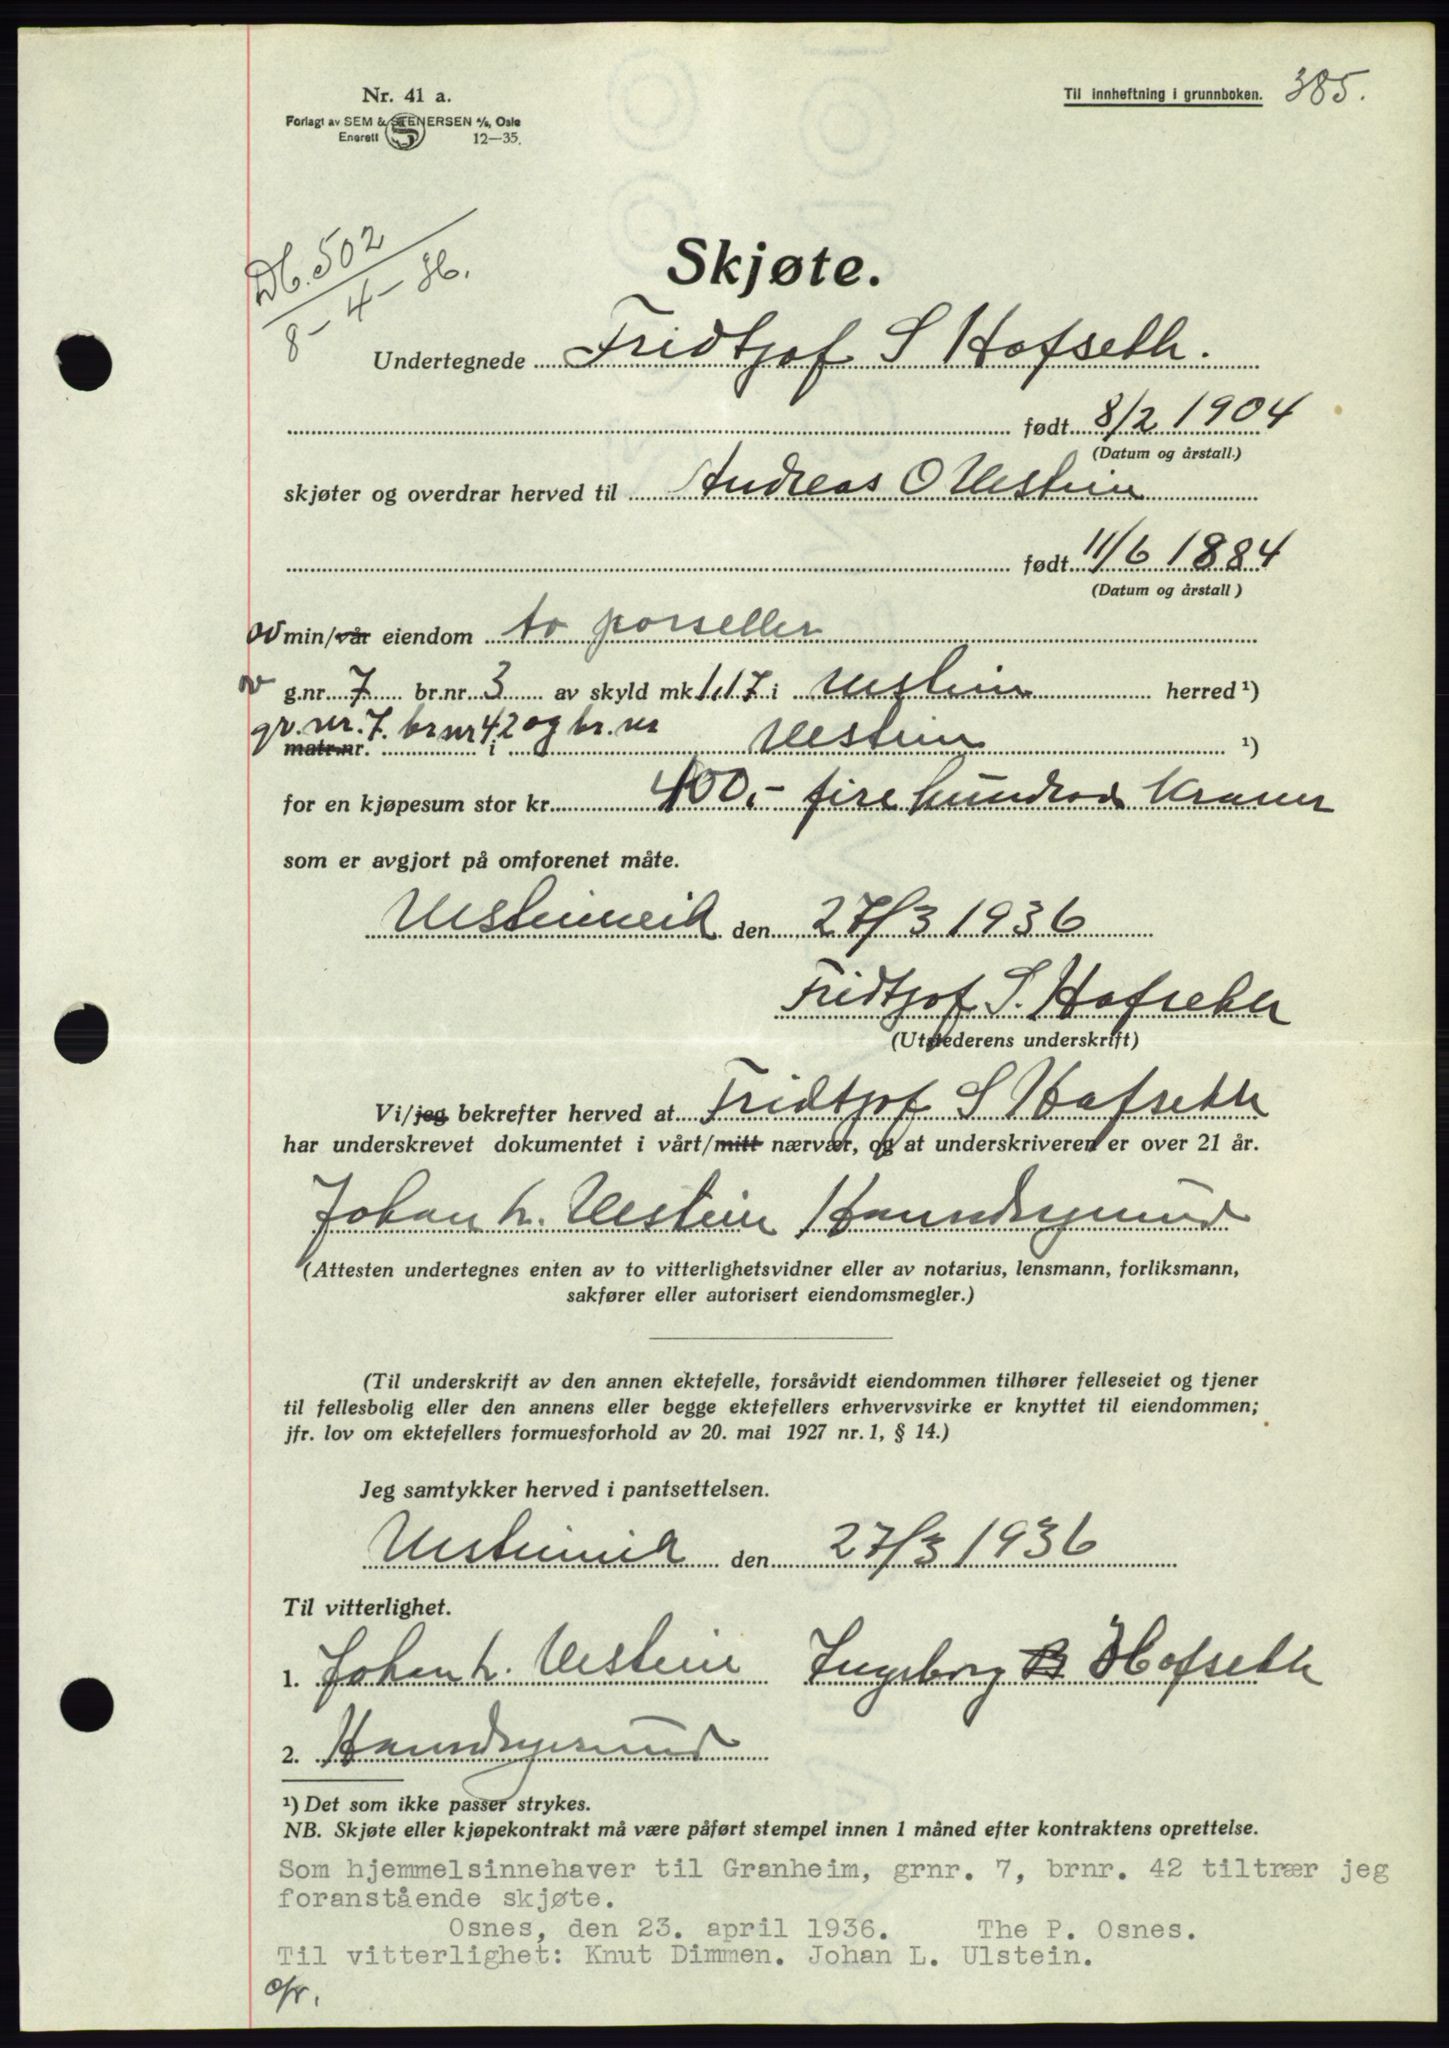 385.
Nr. 41 a.
Til innheftning i grunnboken.
Forlagt av SEM & STENERSEN A/S, Oslo
Enerett 12—35.
Db. 502
8 – 4 – 36.
Skjøte.
Undertegnede Fridtjof S Hofseth.
født 8/2 1904
(Datum og årstall.)
skjøter og overdrar herved til Andreas O Ulstein
født 11/6 1884
(Datum og årstall)
av min/vår eiendom to parseller
av g.nr. 7 br.nr. 3 av skyld mk 1,17 i Ulstein herred ¹)
gr. nr. 7. br nr 42 og br. nr
matr.nr. i Ulstein ¹)
for en kjøpesum stor kr. 400,- fire hundrede Kroner
som er avgjort på omforenet måte.
Ulsteinvik den 27/3 1936
Fridtjof S. Hofseth
(Utstederens underskrift)
Vi/jeg bekrefter herved at Fridtjof S Hofseth
har underskrevet dokumentet i vårt/mitt nærvær, og at underskriveren er over 21 år.
Johan L. Ulstein
(Attesten undertegnes enten av to vitterlighetsvidner eller av notarius, lensmann, forliksmann,
sakfører eller autorisert eiendomsmegler.)
(Til underskrift av den annen ektefelle, forsåvidt eiendommen tilhører felleseiet og tjener
til fellesbolig eller den annens eller begge ektefellers erhvervsvirke er knyttet til eiendommen;
jfr. lov om ektefellers formuesforhold av 20. mai 1927 nr. 1, § 14.)
Jeg samtykker herved i pantsettelsen.
Ulsteinvik den 27/3 1936
Til vitterlighet.
1. Johan L. Ulstein Ingeborg Hofseth
2.
¹) Det som ikke passer strykes.
NB. Skjøte eller kjøpekontrakt må være påført stempel innen 1 måned efter kontraktens oprettelse.
Som hjemmelsinnehaver til Granheim, grnr. 7, brnr. 42 tiltrær jeg
foranstående skjøte.
Osnes, den 23. april 1936. The P. Osnes.
Til vitterlighet: Knut Dimmen. Johan L. Ulstein.